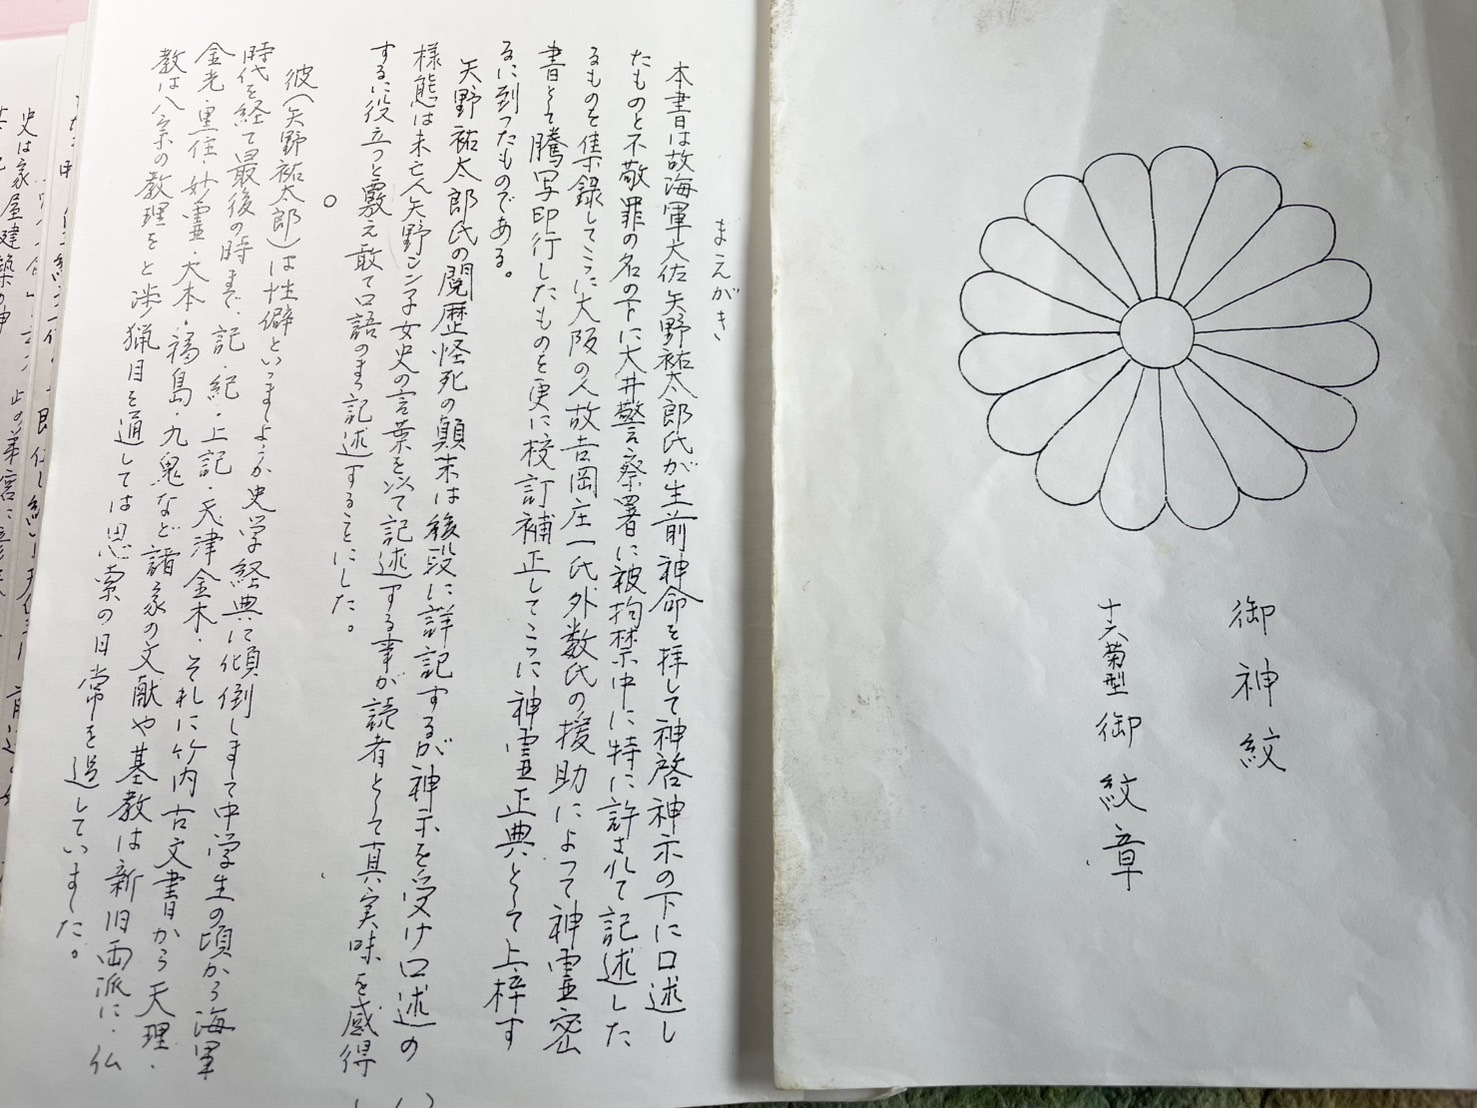 御神紋
十六菊型御紋章
まえがき
本書は故海軍大佐矢野祐太郎氏が生前神命を拝して神啓神示の下に口述し
たものと不敬罪の名の下に大井警察署に被拘禁中に特に許されて記述した
るものを集録してこゝに大阪の人故吉岡庄一氏外数氏の援助によつて神霊密
書として騰写印行したものを更に校訂補正してこゝに神霊正典として上梓す
るに到つたものである。
矢野祐太郎氏の閲歴怪死の顛末は後段に詳記するが神示を受け口述の
様態は未亡人矢野シン子女史の言葉を以て記述する事が読者として真実味を感得
するに役立つと覈え敢て口語のまゝ記述することにした。
○
彼(矢野祐太郎)は性癖といゝましようか史学経典に傾倒しまして中学生の頃から海軍
時代を経て最後の時まで、記・紀・上記・天津金木・それに竹内古文書から天理・
金光・黒住・妙霊・大本・福島・九鬼など諸家の文献や基教は新旧両派に・仏
教は八宗の教理をと渉猟目を通しては思索の日常を過していました。